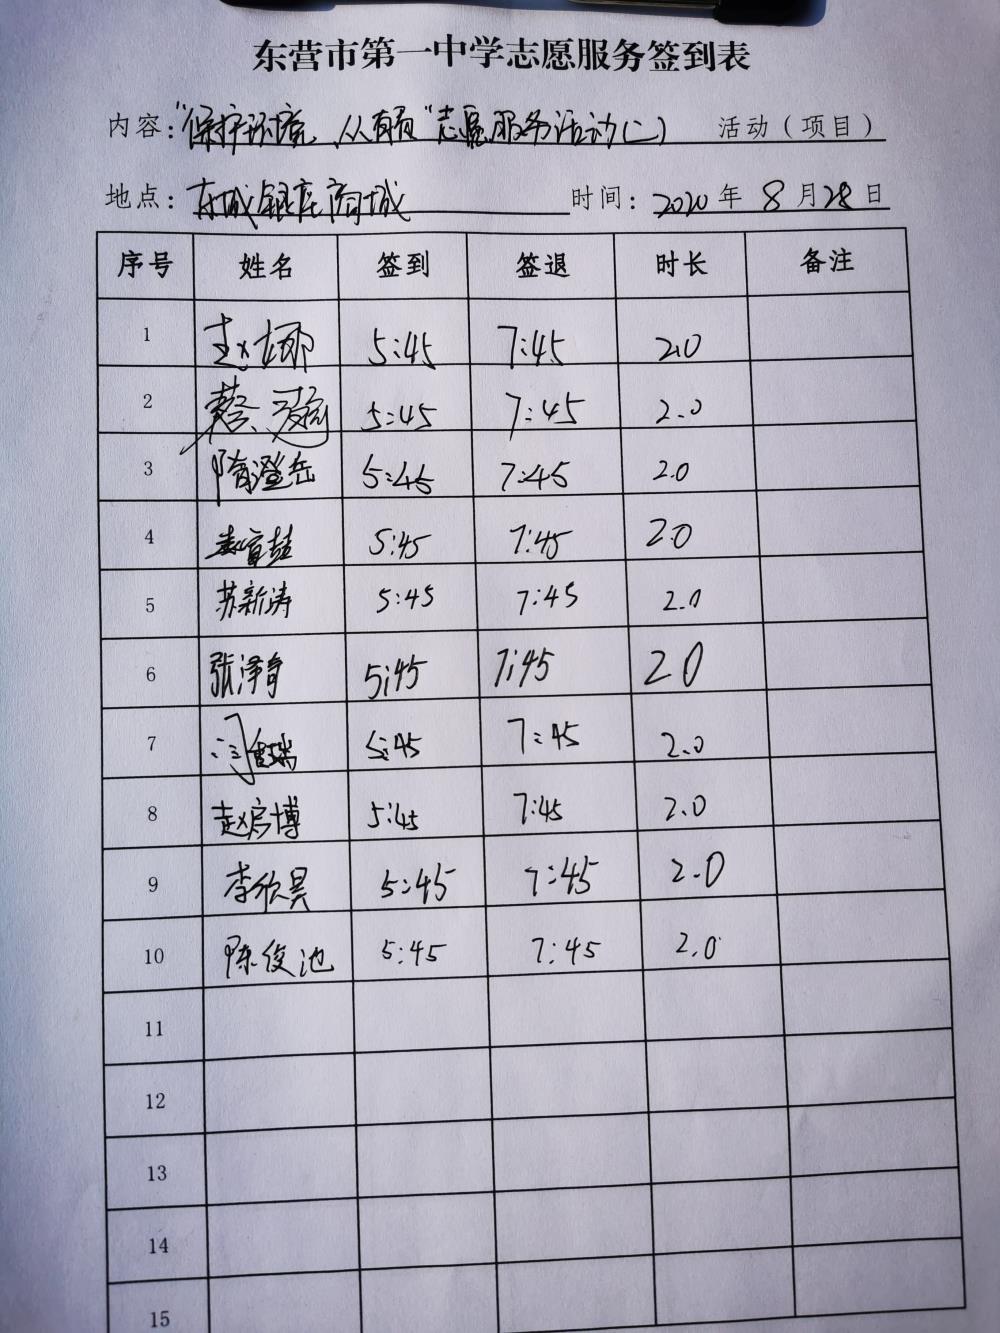 东营市第一中学志愿服务签到表
内容："保护环境、从有我"志愿服务活动(二) 活动（项目）
地点：东城银座商城 时间：2020年8月28日
序号 姓名 签到 签退 时长 备注
1 赵娜 5:45 7:45 2.0
2 蔡 5:45 7:45 2.0
3 隋澄岳 5:45 7:45 2.0
4 5:45 7:45 2.0
5 苏新涛 5:45 7:45 2.0
6 张泽奇 5:45 7:45 2.0
7 5:45 7:45 2.0
8 赵启博 5:45 7:45 2.0
9 李欣昊 5:45 7:45 2.0
10 陈俊池 5:45 7:45 2.0
11
12
13
14
15